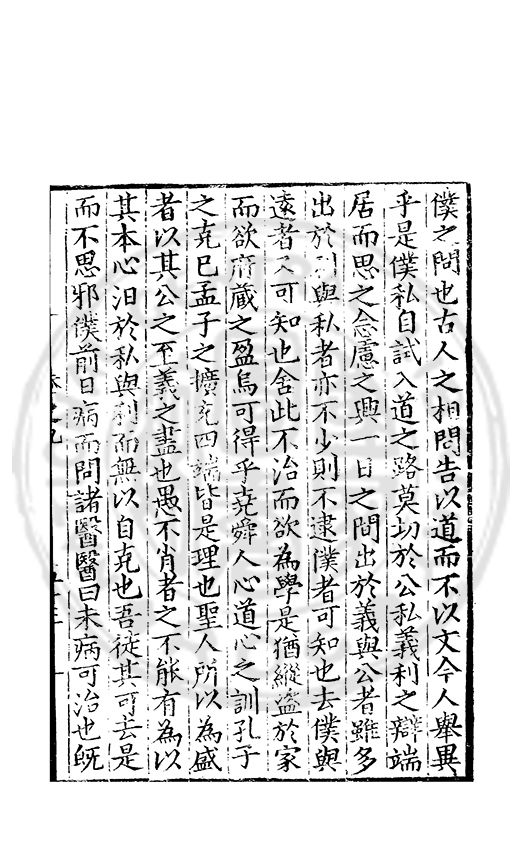 僕之問也古人之相問告以道而不以文今人舉異
乎是僕私自試入道之路莫切於公私義利之辯端
居而思之念慮之興一日之間出於義與公者雖多
出於利與私者亦不少則不逮僕者可知也去僕與
遠者又可知也舍此不治而欲為學是猶縱盜於家
而欲府藏之盈烏可得乎堯舜人心道心之訓孔子
之克已孟子之擴充四端皆是理也聖人所以為盛
者以其公之至義之盡也愚不肖者之不能有為以
其本心汩於私與利而無以自克也吾徒其可去是
而不思邪僕前日病而問諸醫醫曰未病可治也既